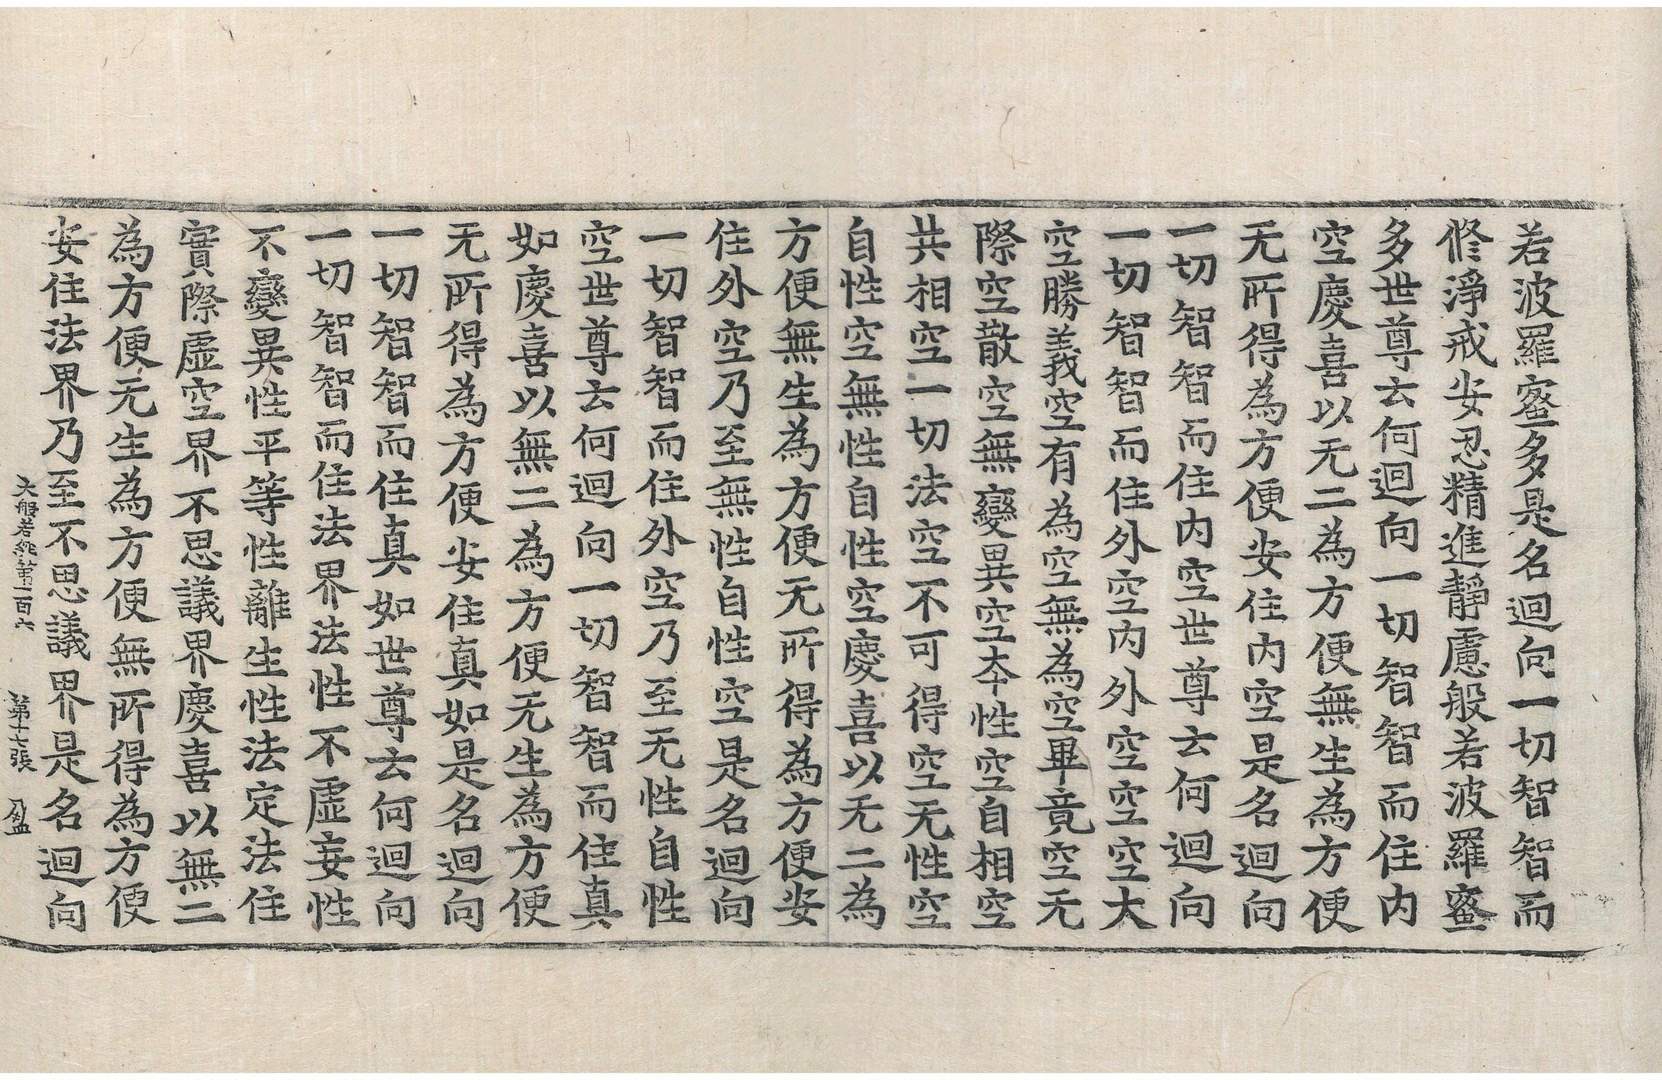 若波羅蜜多是名迴向一切智智而
修淨戒安忍精進靜慮般若波羅蜜
多世尊云何迴向一切智智而住內
空慶喜以无二為方便無生為方便
无所得為方便安住內空是名迴向
一切智智而住內空世尊云何迴向
一切智智而住外空內外空空空大
空勝義空有為空無為空畢竟空无
際空散空無變異空本性空自相空
共相空一切法空不可得空无性空
自性空無性自性空慶喜以无二為
方便無生為方便无所得為方便安
住外空乃至無性自性空是名迴向
一切智智而住外空乃至无性自性
空世尊云何迴向一切智智而住真
如慶喜以無二為方便无生為方便
无所得為方便安住真如是名迴向
一切智智而住真如世尊云何迴向
一切智智而住法界法性不虛妄性
不變異性平等性離生性法定法住
實際虛空界不思議界慶喜以無二
為方便无生為方便無所得為方便
安住法界乃至不思議界是名迴向
大般若經第一百六 第十七張 盈